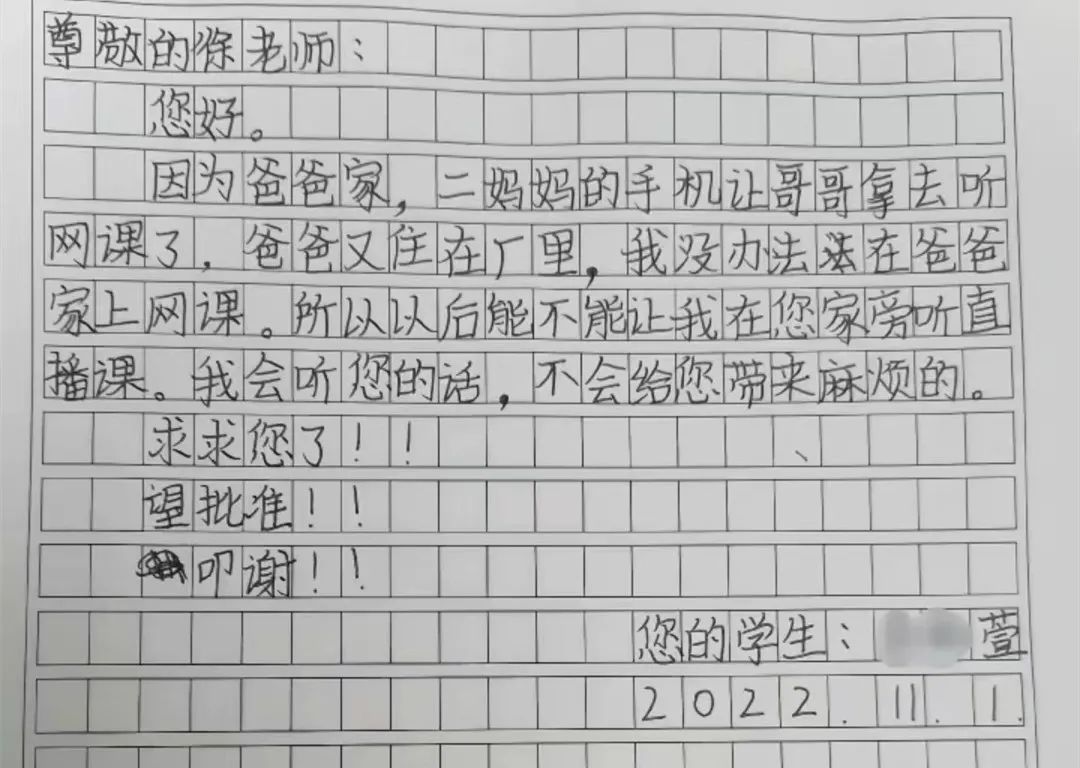 尊敬的徐老师：
您好。
因为爸爸家，二妈妈的手机让哥哥拿去听
网课了，爸爸又住在厂里，我没办法法在爸爸
家上网课。所以以后能不能让我在您家旁听直
播课。我会听您的话，不会给您带来麻烦的。
求求您了！！
望批准！！
叩谢！！
您的学生：萱
2022.11.1.